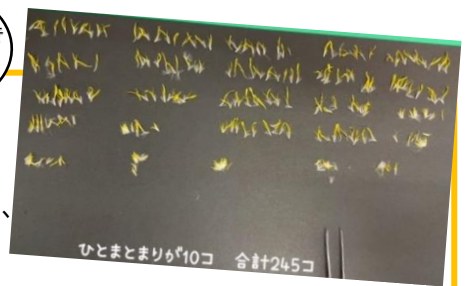 ひとまとまりが10コ 合計245コ